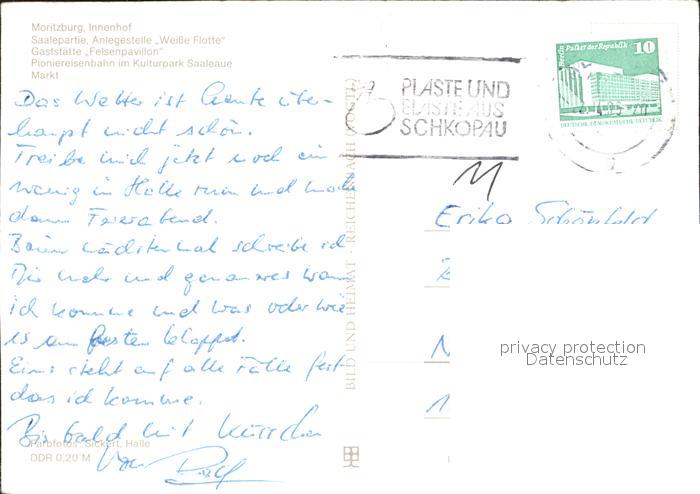 Moritzburg, Innenhof
Saalepartie, Anlegestelle „Weiße Flotte"
Gaststätte „Felsenpavillon"
Pioniereisenbahn im Kulturpark Saaleaue
Markt
Das Wetter ist heute über-
haupt nicht schön.
Treibe mich jetzt noch ein
wenig in Halle rum und mache
dann Feierabend.
Beim nächstenmal schreibe ich
Dir mehr und genaueres wann
ich komme und was oder wie
es am besten klappt.
Eins steht auf alle Fälle fest
das ich komme.
Bis bald mit Küsschen
Von Rolf
Farbfotos: Sickert, Halle
DDR 0,20 M
BILD UND HEIMAT REICHENBACH (VOGTL)
PLASTE UND
ELASTE AUS
SCHKOPAU
Berlin, Palast der Republik 10
DEUTSCHE DEMOKRATISCHE REPUBLIK
M
Erika Schönfeld
N
privacy protection
Datenschutz